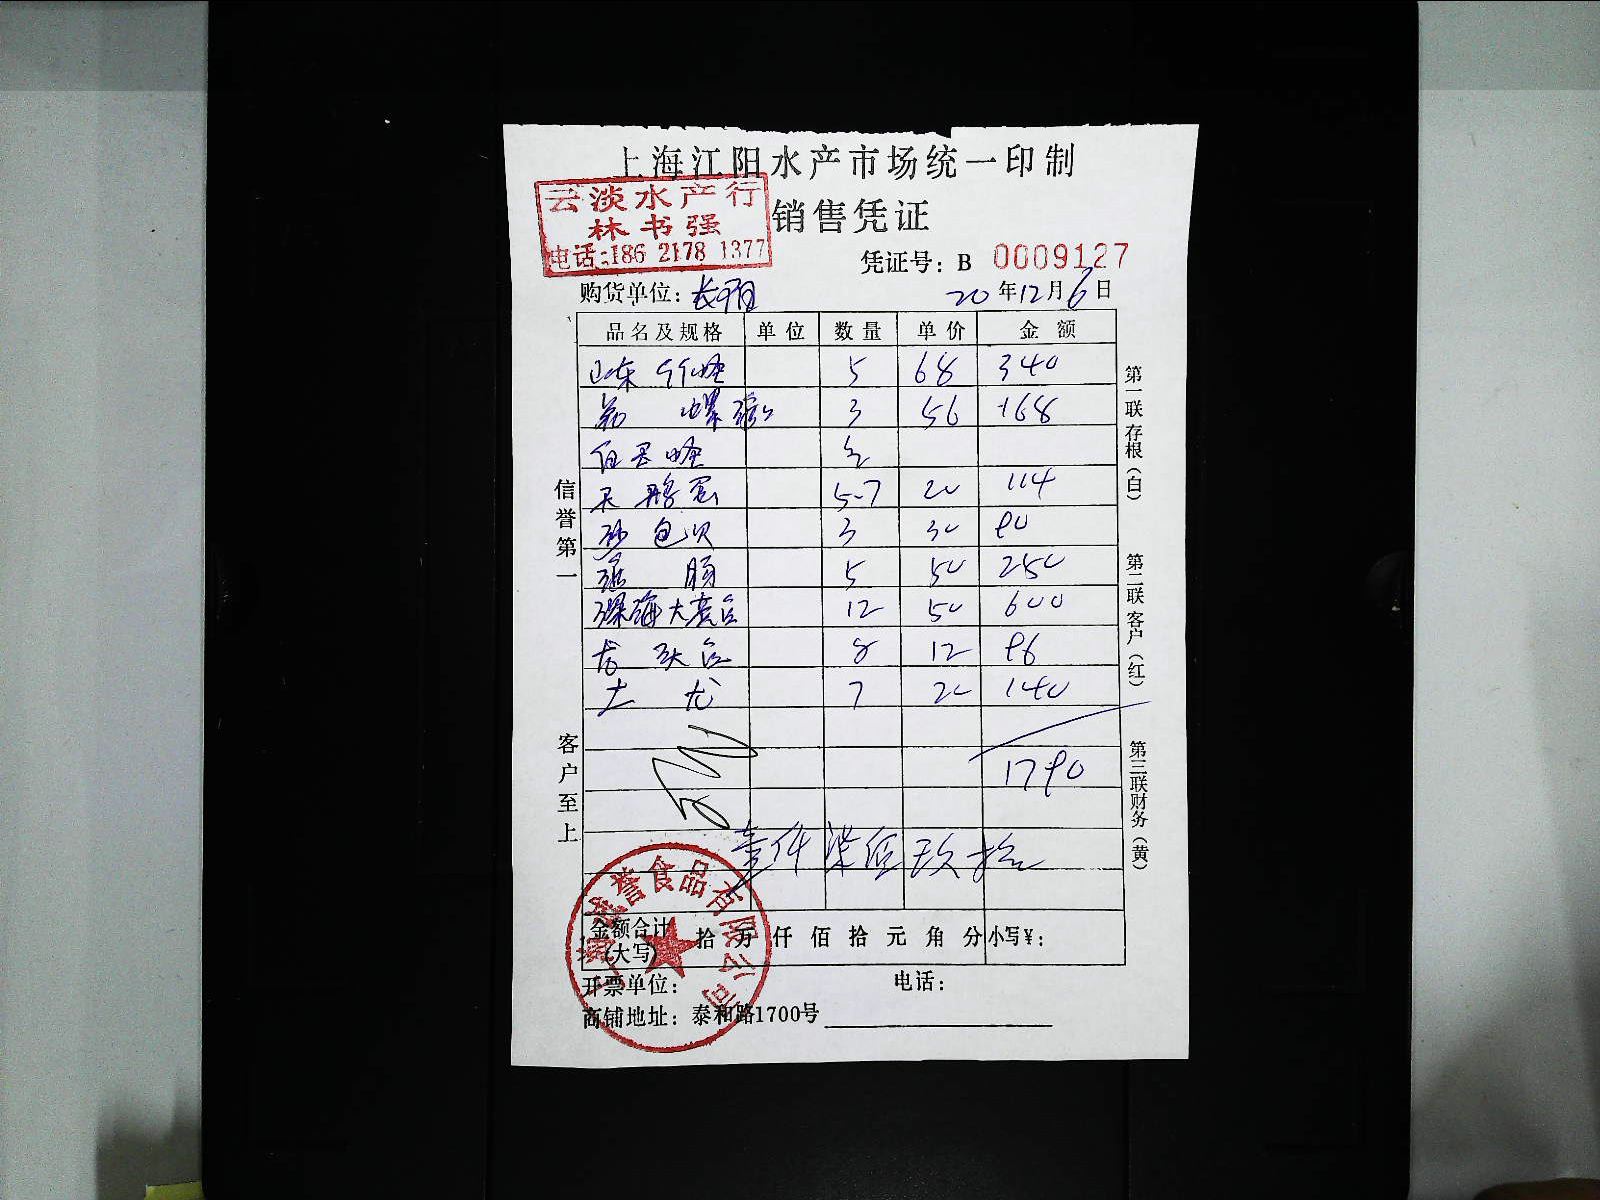 上海江阳水产市场统一印制
销售凭证
云淡水产行
林书强
电话:186 2178 1377
凭证号: B 0009127
购货单位:
20年12月6日
品名及规格 单位 数量 单价 金额
山东 竹蛏 5 68 340
螺 3 56 168
天鹅蛋 5.7 20 114
沙包贝 3 30 90
肠 5 50 250
深海大 12 50 600
龙头 8 12 96
土龙 7 20 140
1790
壹仟柒佰玖拾
金额合计(大写) 拾 万 仟 佰 拾 元 角 分 小写¥:
开票单位: 电话:
商铺地址: 泰和路1700号
信誉第一
客户至上
第一联存根(白)
第二联客户(红)
第三联财务(黄)
誉食品有限公司